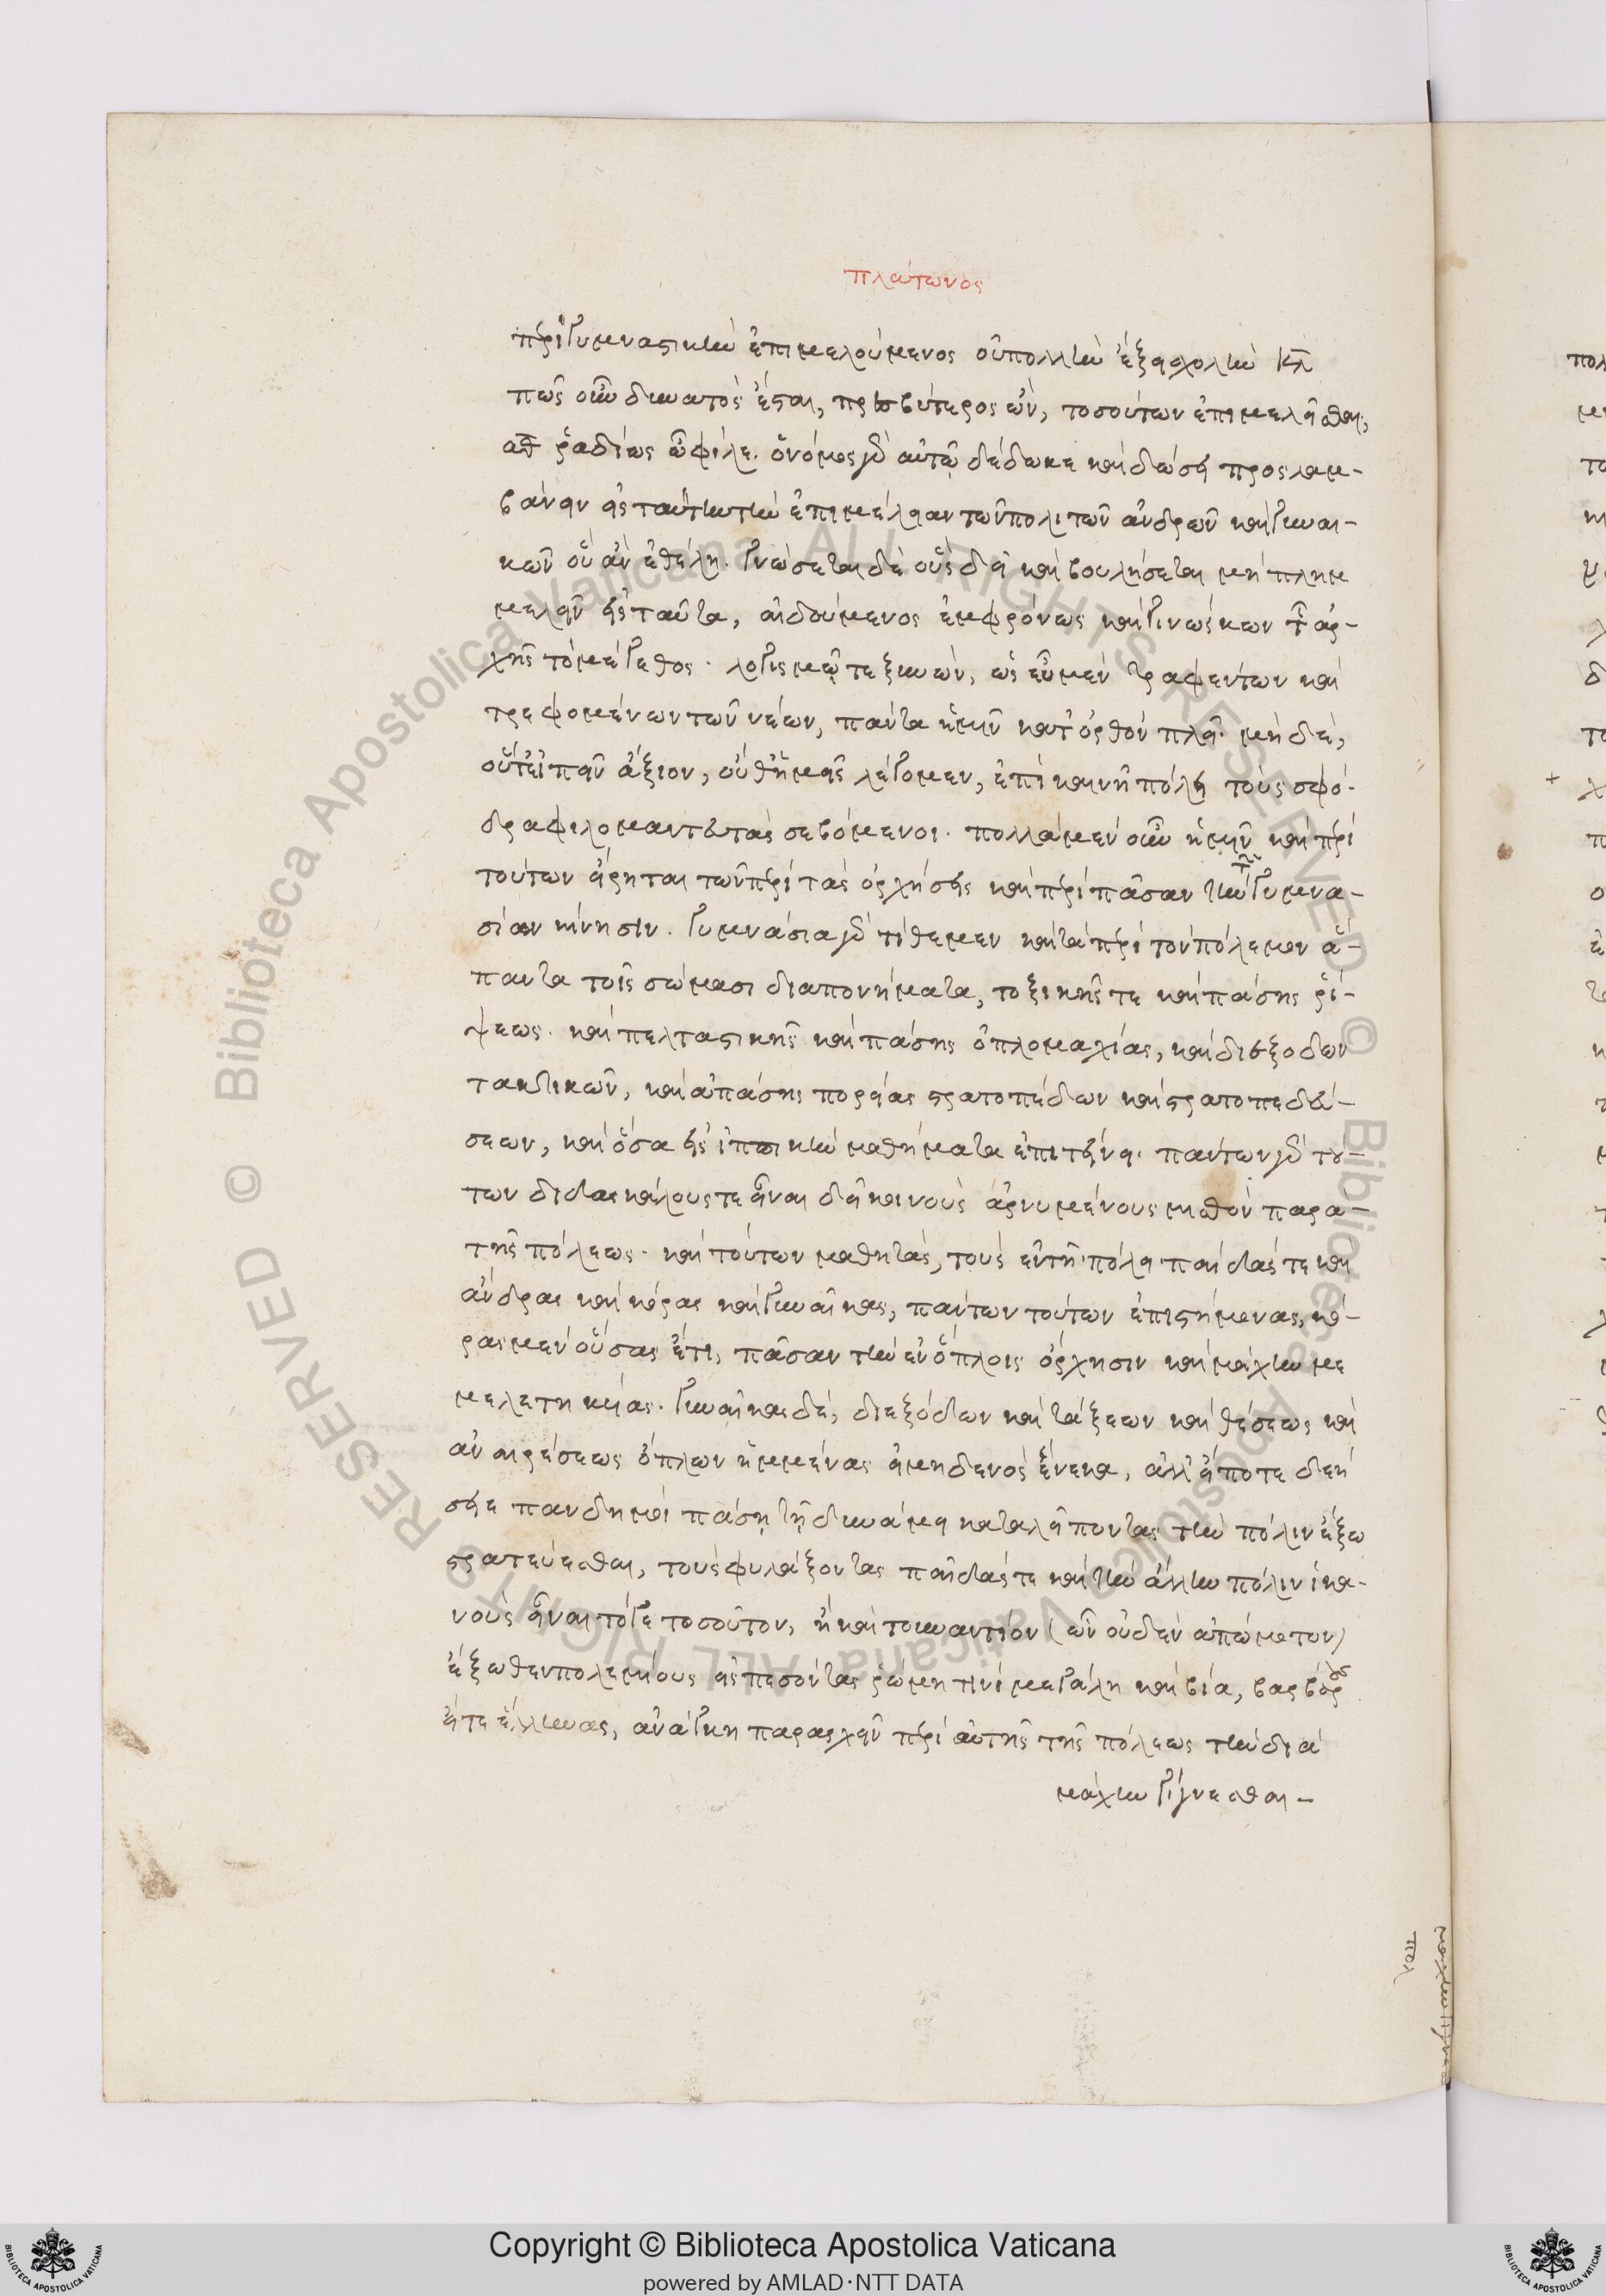 πλάτωνος
περὶ γυμναστικὴν ἐπιμελούμενος οὐ πολλὴν ἕξει σχολήν ΚΛ
πῶς οὖν δυνατὸς ἔσται, πρεσβύτερος ὢν, τοσούτων ἐπιμελεῖσθαι;
ΑΘ ῥαδίως ὦ φίλε. ὁ νόμος γὰρ αὐτῷ δέδωκε καὶ δώσει προσλαμ-
βάνειν εἰς ταύτην τὴν ἐπιμέλειαν τῶν πολιτῶν ἀνδρῶν καὶ γυναι-
κῶν οὓς ἂν ἐθέλῃ. γνώσεται δὲ οὓς δεῖ καὶ βουλήσεται μὴ πλημ
μελεῖν εἰς ταῦτα, αἰδούμενος ἐμφρόνως καὶ γινώσκων τῆς ἀρ-
χῆς τὸ μέγεθος. λογισμῷ τε ξυνὼν, ὡς εὖ μὲν τραφέντων καὶ
τρεφομένων τῶν νέων, πάντα ἡμῖν κατ' ὀρθὸν πλεῖ. μὴ δὲ,
οὔτ' εἰπεῖν ἄξιον, οὔθ' ἡμεῖς λέγομεν, ἐπὶ καινῇ πόλει τοὺς σφό-
δρα φιλομαντευτὰς σεβόμενοι. πολλὰ μὲν οὖν ἡμῖν καὶ περὶ
τούτων εἴρηται τῶν περὶ τὰς ὀρχήσεις καὶ περὶ πᾶσαν τὴν τῶν γυμνα-
σίων κίνησιν. γυμνάσια γὰρ τίθεμεν καὶ τὰ περὶ τὸν πόλεμον ἅ-
παντα τοῖς σώμασι διαπονήματα, τοξικῆς τε καὶ πάσης ῥί-
ψεως. καὶ πελταστικῆς καὶ πάσης ὁπλομαχίας, καὶ διεξόδων
τακτικῶν, καὶ ἁπάσης πορείας στρατοπέδων καὶ στρατοπεδεύ-
σεων, καὶ ὅσα εἰς ἱππικὴν μαθήματα ἐπιτείνει. πάντων γὰρ τού-
των διδασκάλους τε εἶναι δεῖ κοινοὺς ἀρνυμένους μισθὸν παρὰ-
τῆς πόλεως. καὶ τούτων μαθητὰς, τοὺς ἐν τῇ πόλει παῖδάς τε καὶ
ἄνδρας καὶ κόρας καὶ γυναῖκας, πάντων τούτων ἐπιστήμονας, κό-
ρας μὲν οὔσας ἔτι, πᾶσαν τὴν ἐν ὅπλοις ὄρχησιν καὶ μάχην με
μελετηκυίας. γυναῖκας δὲ, διεξόδων καὶ τάξεων καὶ θέσεως καὶ
ἀναιρέσεως ὅπλων ἡμμένας εἰ μηδενὸς ἕνεκα, ἀλλ' εἴ ποτε δεή
σειε πανδημεὶ πάσῃ τῇ δυνάμει καταλείποντας τὴν πόλιν ἔξω
στρατεύεσθαι, τοὺς φυλάξοντας παῖδάς τε καὶ τὴν ἄλλην πόλιν ἱκα-
νοὺς εἶναι τό γε τοσοῦτον, ἢ καὶ τοὐναντίον (ὧν οὐδὲν ἀπώμοτον)
ἔξωθεν πολεμίους εἰσπεσόντας ῥώμῃ τινὶ μεγάλῃ καὶ βίᾳ, βαρβάρους
εἴτε ἕλληνας, ἀνάγκη παρασχεῖν περὶ αὐτῆς τῆς πόλεως τὴν δια
μάχην γίγνεσθαι-
Copyright © Biblioteca Apostolica Vaticana
powered by AMLAD·NTT DATA
© Biblioteca Apostolica Vaticana ALL RIGHTS RESERVED © Biblioteca Apostolica Vaticana ALL RIGHTS RESERVED
BIBLIOTECA APOSTOLICA VATICANA
BIBLIOTECA APOSTOLICA VATICANA